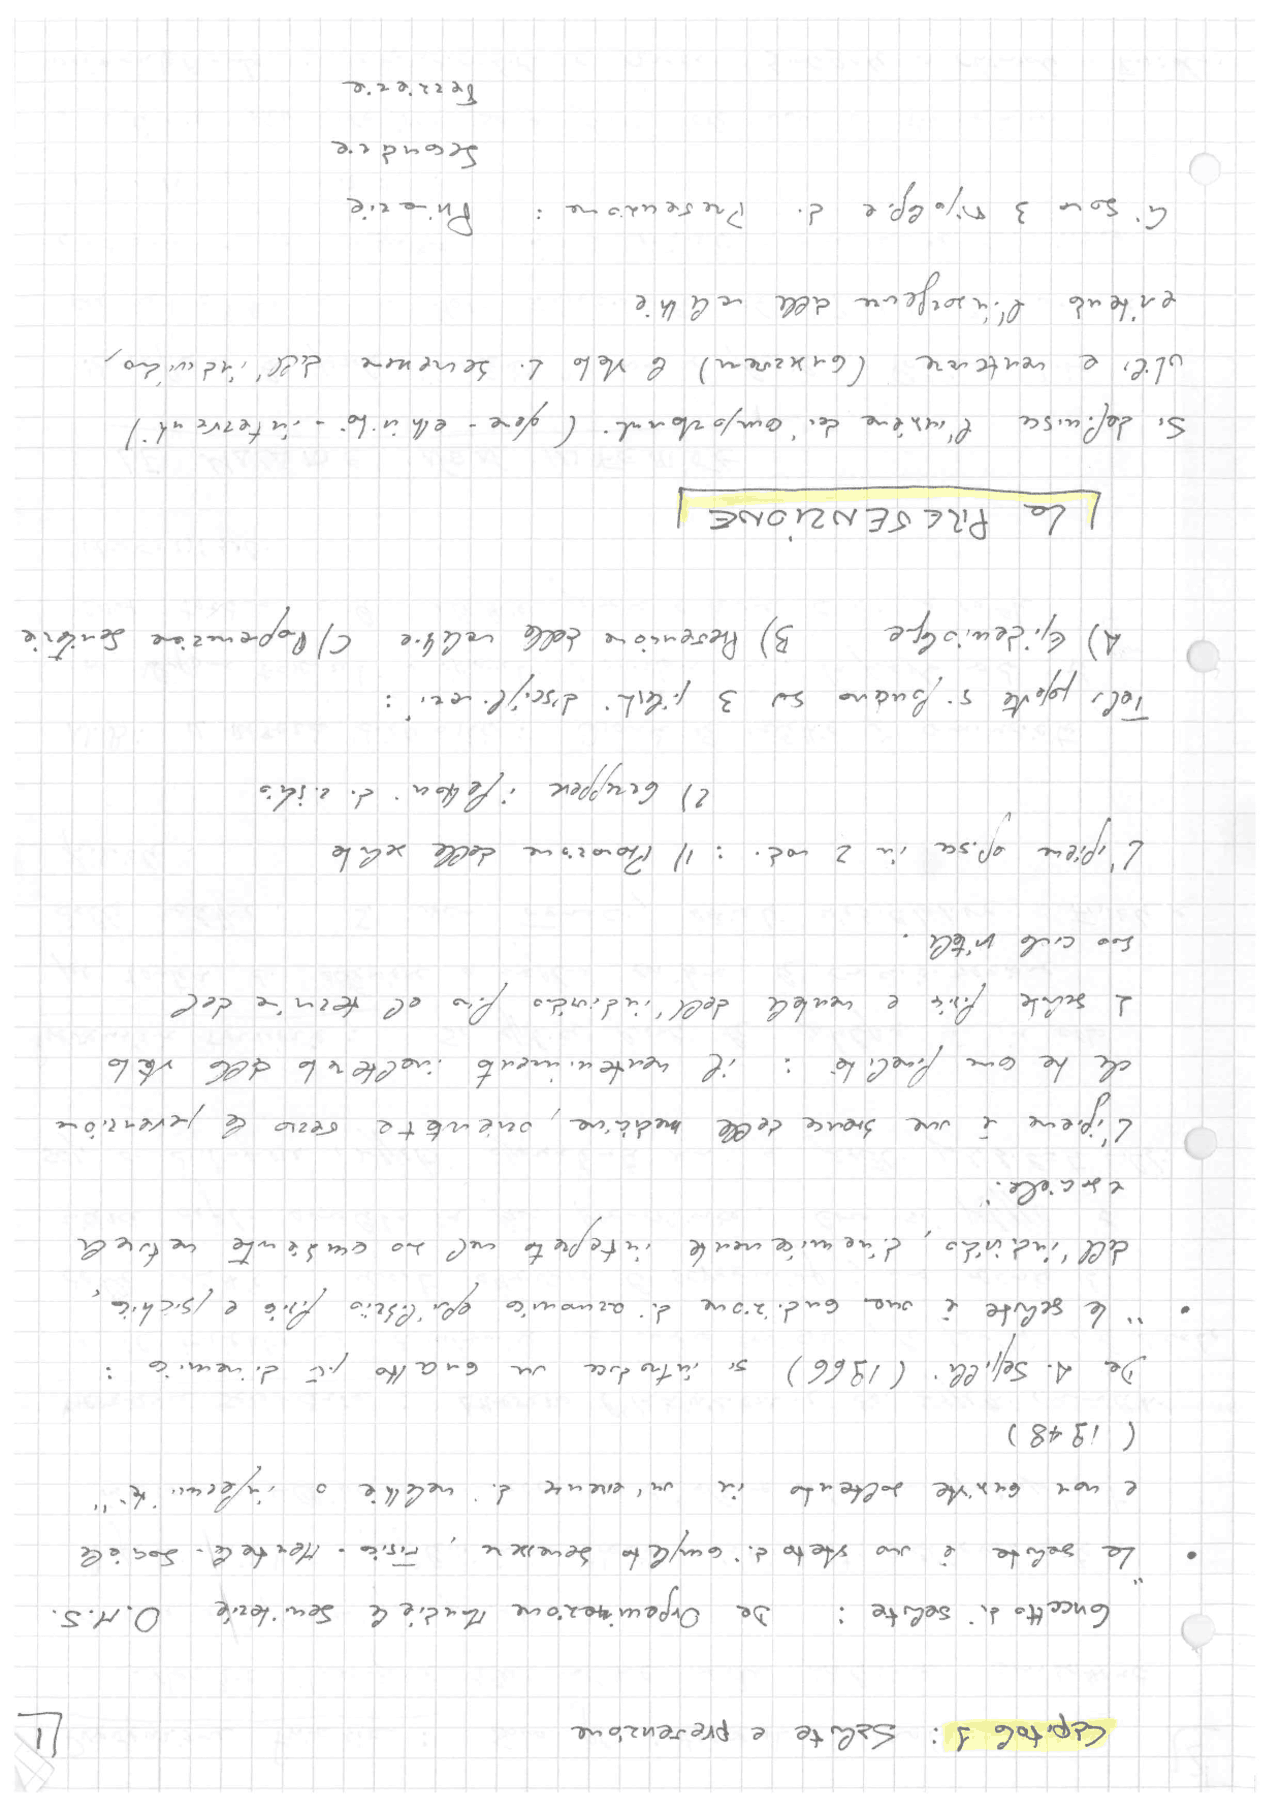 Capitolo 1 : Salute e prevenzione
1
Concetto di salute : Da Organizzazione Mondiale Sanitaria O.M.S.
• "La salute è uno stato di completo benessere, Fisico - Mentale - Sociale
e non consiste soltanto in un'assenza di malattie o infermità"
(1948)
Da A. Seppilli (1966) si introduce un concetto più dinamico :
• "la salute è una condizione di armonico equilibrio fisico e psichico,
dell'individuo, dinamicamente integrato nel suo ambiente naturale
e sociale".
L'igiene è una scienza della medicina, orientata verso la prevenzione
che ha come finalità : il mantenimento inalterato dello stato
di salute fisica e mentale dell'individuo fino al termine del
suo ciclo vitale.
L'igiene agisce in 2 modi : 1) Promozione della salute
2) fattori di rischio
Tali si fondano su 3 pilastri disciplinari :
A) Epidemiologia B) Prevenzione delle malattie C) Programmazione Sanitaria
La PREVENZIONE
Si definisce l'insieme dei comportamenti (gare - attività - interventi)
utili a mantenere (conservare) lo stato di benessere dell'individuo,
evitando l'insorgenza delle malattie
Ci sono 3 tipologie di Prevenzione : Primaria
Secondaria
Terziaria